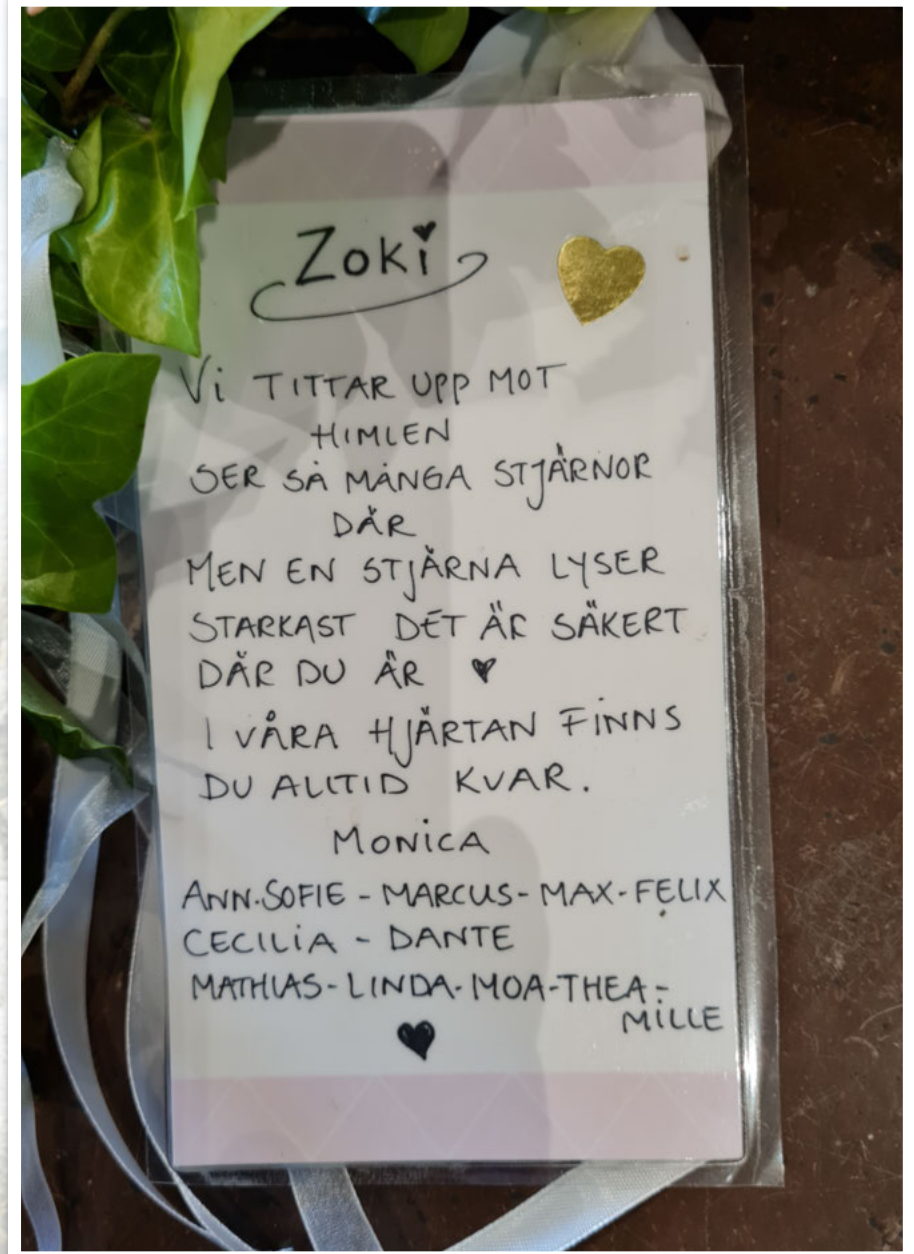 Zoki
Vi TITTAR UPP MOT
HIMLEN
SER SÅ MÅNGA STJÄRNOR
DÄR
MEN EN STJÄRNA LYSER
STARKAST DET ÄR SÄKERT
DÄR DU ÄR ♥
I VÅRA HJÄRTAN FINNS
DU ALLTID KVAR.
MONiCA
ANN-SOFIE - MARCUS - MAX - FELIX
CECILiA - DANTE
MATHIAS - LINDA - MOA - THEA -
MiLLE
♥